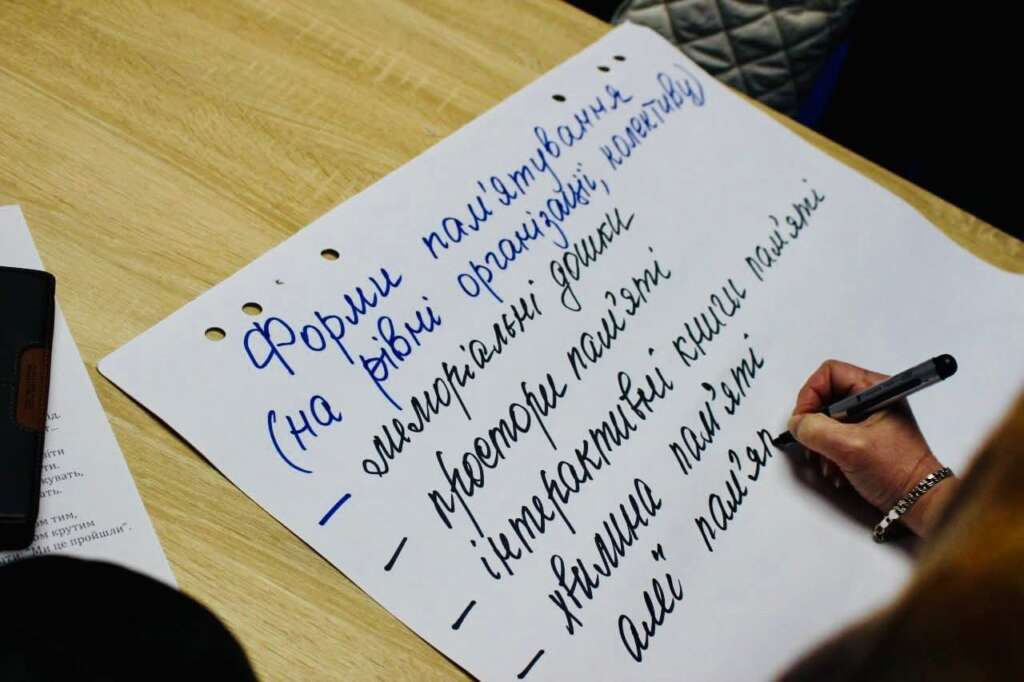 Форми пам'ятування
(на рівні організації, колективу)
- меморіальні дошки
- простори пам'яті
- інтерактивні книги пам'яті
- хвилина пам'яті
алеї пам'ят
тим,
крутим
"Ми це пройшли".